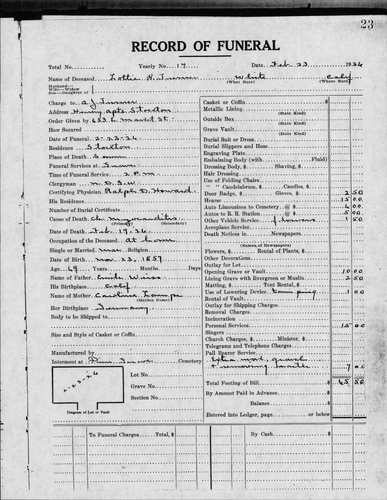 23
RECORD OF FUNERAL
Total No. Yearly No. 17 Date, Feb. 23 1926
Name of Deceased, Lottie B. Turner White Calif
(What Race) (Where Born)
Husband—
Wife—Widow
Son—Daughter of
Charge to A J Turner
Address Henry apts Stockton
Order Given by 633 E. Market St.
How Secured
Date of Funeral, 2-23-26
Residence, Stockton
Place of Death,
Funeral Services at
Time of Funeral Service, 2 P.M.
Clergyman
Certifying Physician, Ralph D. Howard
His Residence,
Number of Burial Certificate
Cause of Death, Ch. Myocarditis
(Secondary)
Date of Death, Feb. 19-26
Occupation of the Deceased at home
Single or Married mar. Religion
Date of Birth, Nov. 23, 1857
Age, 69 Years, Months Days
Name of Father, Emile Wise
His Birthplace, Calif
Name of Mother, Caroline
(Maiden Name)
Her Birthplace, Germany
Body to be Shipped to
Size and Style of Casket or Coffin,
Manufactured by
Interment at Cemetery
2-23-26
Lot No.
Grave No.
Section No.
Diagram of Lot or Vault
Casket or Coffin,
Metallic Lining
(State Kind)
Outside Box
(State Kind)
Grave Vault
(State Kind)
Burial Suit or Dress
Burial Slippers and Hose
Engraving Plate
Embalming Body (with Fluid)
Dressing Body, $ Shaving, $
Hair Dressing
Use of Folding Chairs
" " Candelabrum, $ Candles, $
Door Badge, $ Gloves, $ 2 50
Hearse 15 00
Auto Limousines to Cemetery @ $ 4 00
Autos to R. R. Station @ $ 5 00
Other Vehicle Service flowers 1 50
Aeroplane Service
Death Notices in Newspapers
(Names of Newspapers)
Flowers, $ Rental of Plants, $
Other Decorations
Outlay for Lot
Opening Grave or Vault 10 00
Lining Grave with Evergreen or Muslin 2 50
Matting, $ Tent Rental, $
Use of Lowering Device 1 00
Rental of Vault
Outlay for Shipping Charges
Removal Charges
Incineration
Personal Services 15 00
Singers
Church Charges, $ Minister, $
Telegrams and Telephone Charges
Pall Bearer Service
Total Footing of Bill $
By Amount Paid in Advance
Balance $
Entered into Ledger, page or below
To Funeral Charges Total, $ By Cash $